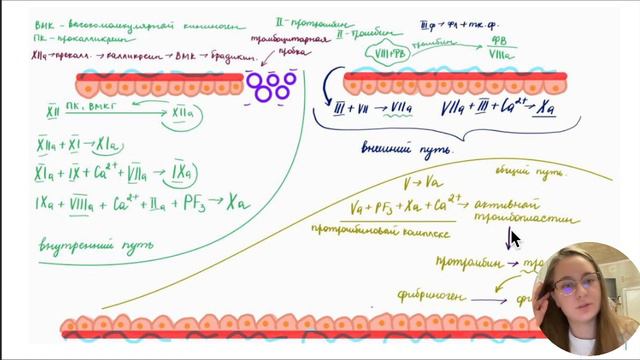 ВМК - высокомолекулярный кининоген
ПК - прокалликреин
XIIa→прекалл. → калликреин → ВМК → брадикин.
II - протромбин
тромбоцитарная
пробка
II - тромбин
III ф → фл + тк. ф.
VIII + ФВ
тромбин
ФВ
VIIIa
XII ПК, ВМКГ XIIa
XIIa + XI → XIa
XIa + IX + Ca²⁺ + VIIa → IXa
IXa + VIIIa + Ca²⁺ + IIa + PF₃ → Xa
внутренний путь
III + VII → VIIa
VIIa + III + Ca²⁺ → Xa
внешний путь.
общий путь.
V → Va
Va + PF₃ + Xa + Ca²⁺ → активный
тромбопластин
протромбиновый комплекс
протромбин → тро
фибриноген → фи